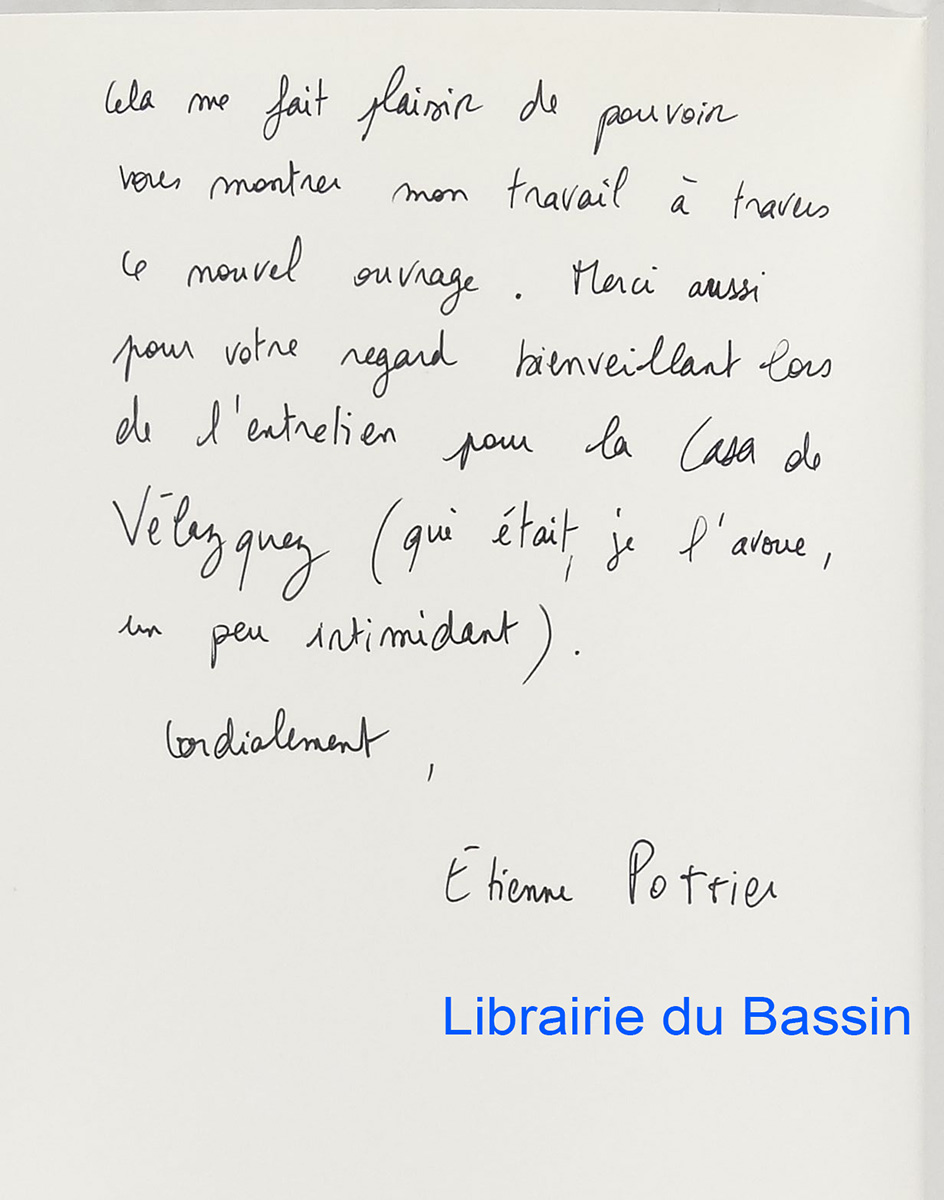 Cela me fait plaisir de pouvoir
vous montrer mon travail à travers
ce nouvel ouvrage. Merci aussi
pour votre regard bienveillant lors
de l'entretien pour la Casa de
Vélazquez (qui était, je l'avoue,
un peu intimidant).
Cordialement,
Étienne Pottier
Librairie du Bassin